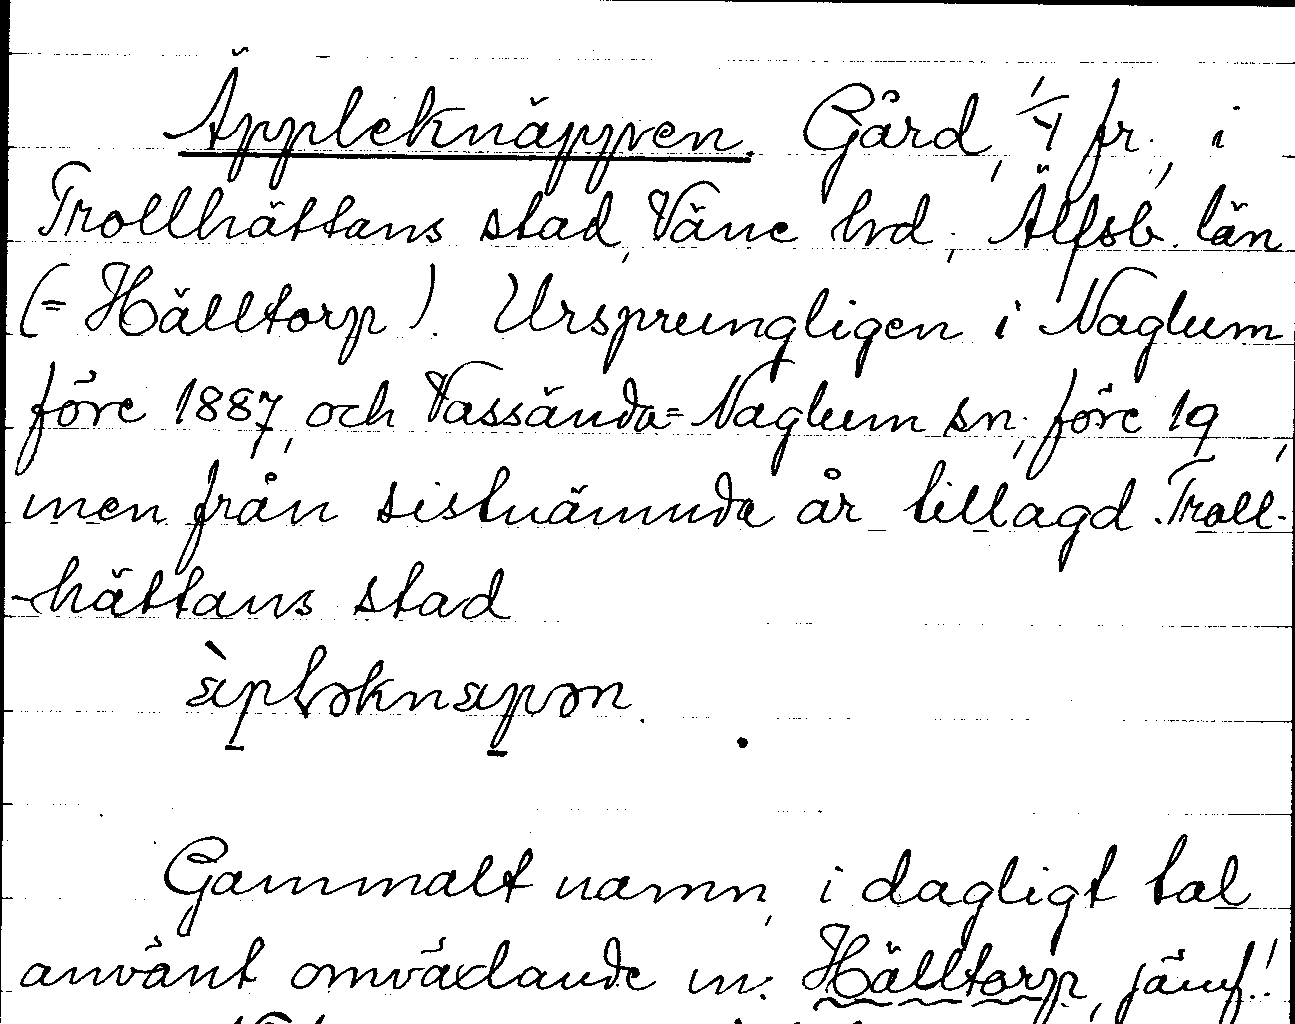 Äppleknäppen. Gård, 1/4 fr., i
Trollhättans stad, Väne hrd, Älfsb. län
(= Hälltorp). Ursprungligen i Naglum
före 1887, och Vassända=Naglum sn, före 19 ,
men från sistnämnda år tillagd Troll-
-hättans stad
Gammalt namn, i dagligt tal
använt omväxlande m. Hälltorp, jämf.!